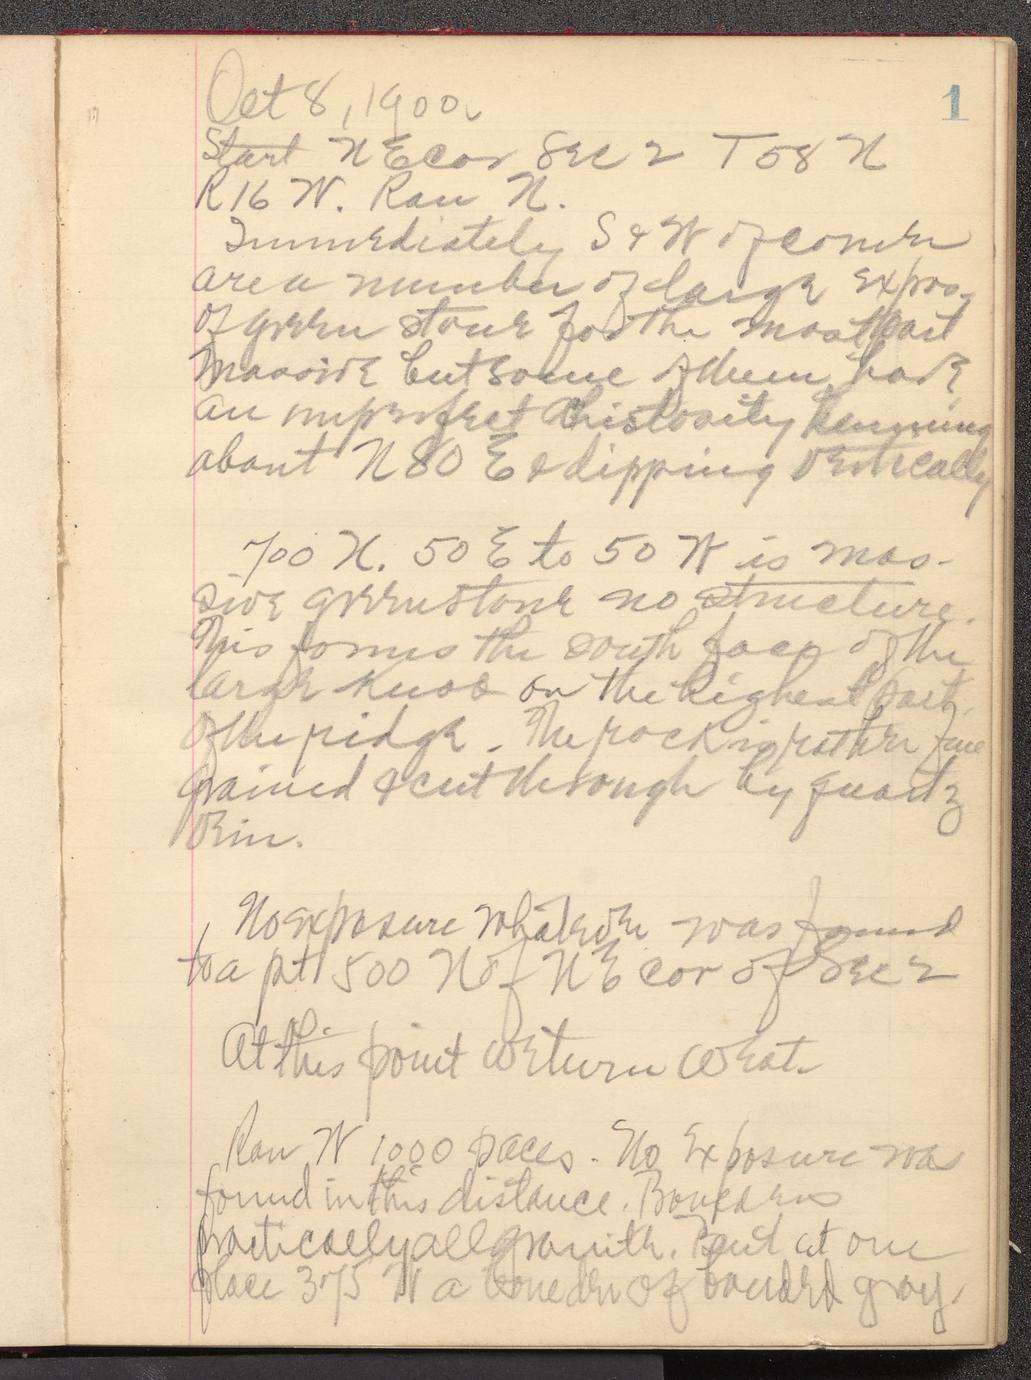 1
Oct 8, 1900.
Start NE cor Sec 2 T 58 N
R 16 W. Ran N.
Immediately S & W of corner
are a number of large expos.
of green stone for the most part
massive but some of them have
an imperfect schistosity running
about N 80 E & dipping vertically
700 N. 50 E to 50 W is mas-
sive greenstone no structure.
This forms the south face of the
large knob on the highest part.
of the ridge. The rock is rather fine
grained & cut through by quartz
vein.
No exposure whatever was found
to a pt 1500 N of NE cor of Sec 2
At this point we turn West.
Ran W 1000 paces. No Exposure was
found in this distance. Boulders
practically all granite. But at one
place 375 W a boulder of banded gray